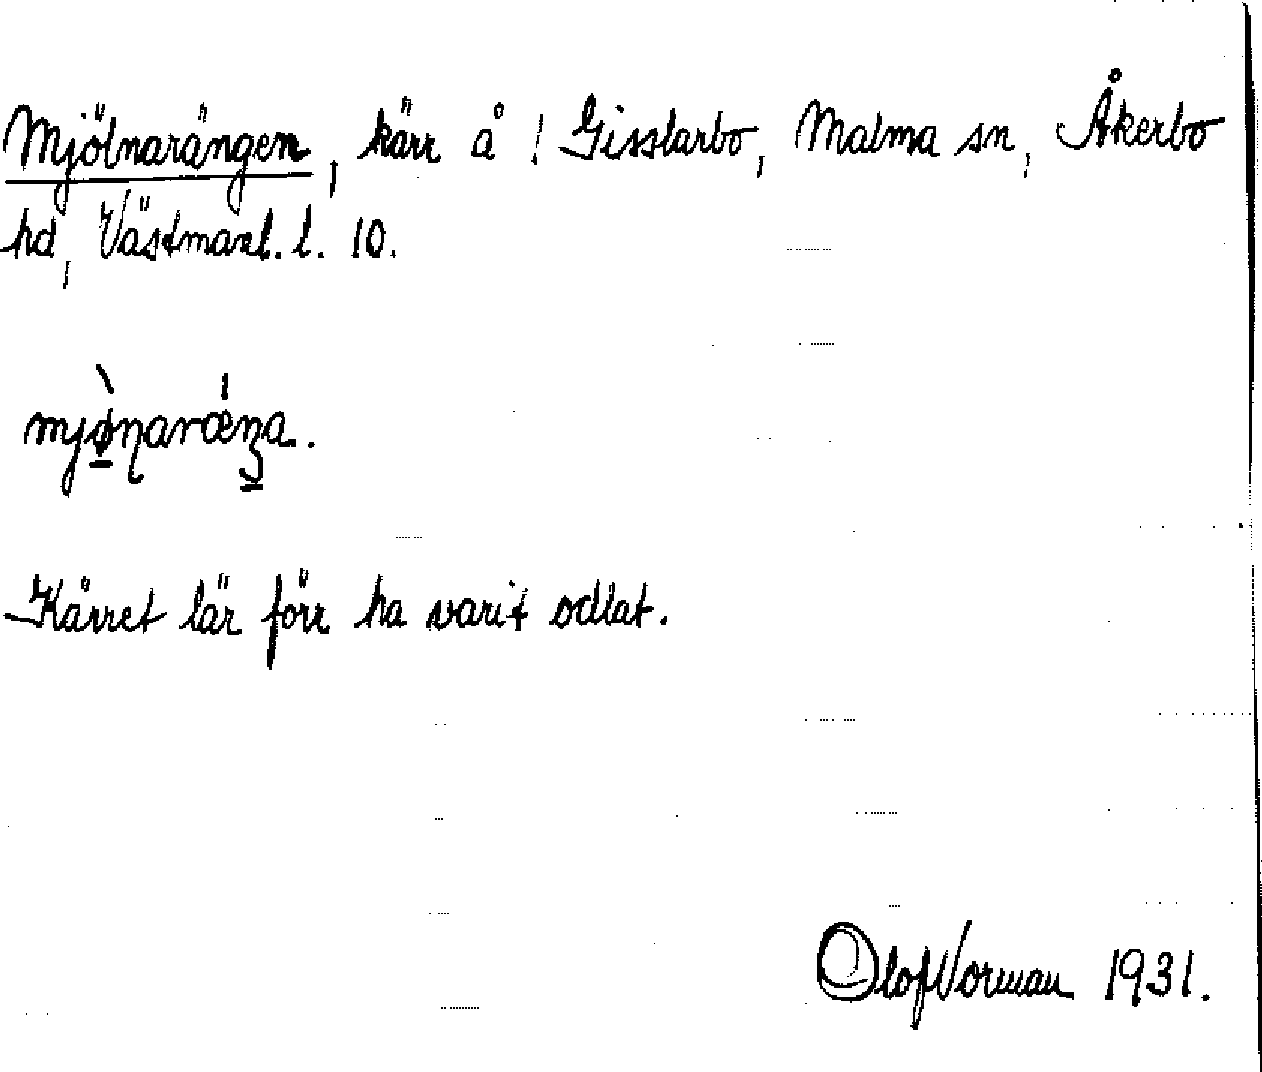 Mjölnarängen, kärr å ! Gisslarbo, Malma sn, Åkerbo
hd, Västmanl. l. 10.
Kärret lär förr ha varit odlat.
Olof Norman 1931.